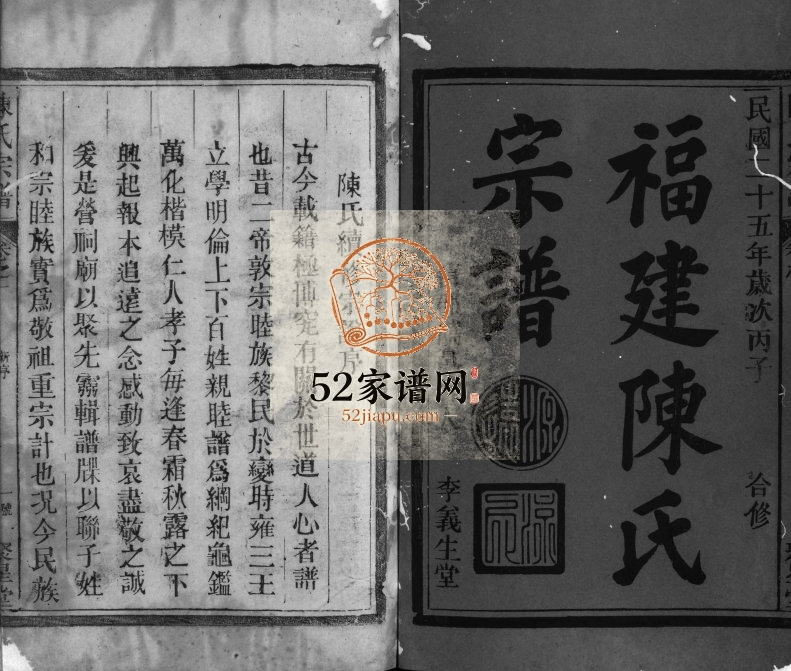 民國二十五年歲次丙子
合修
福建陳氏
宗譜
李義生堂
陳氏續修宗譜序
古今載籍極博究有關於世道人心者譜
也昔二帝敦宗睦族黎民於變時雍三王
立學明倫上下百姓親睦譜爲綱紀龜鑑
萬化楷模仁人孝子每逢春霜秋露之下
興起報本追遠之念感動致哀盡敬之誠
爰是營祠廟以聚先靈輯譜牒以聯子姓
和宗睦族實爲敬祖重宗計也况今民族
陳氏宗譜
新序
一號
聚星堂
52家谱网
52jiapu.com